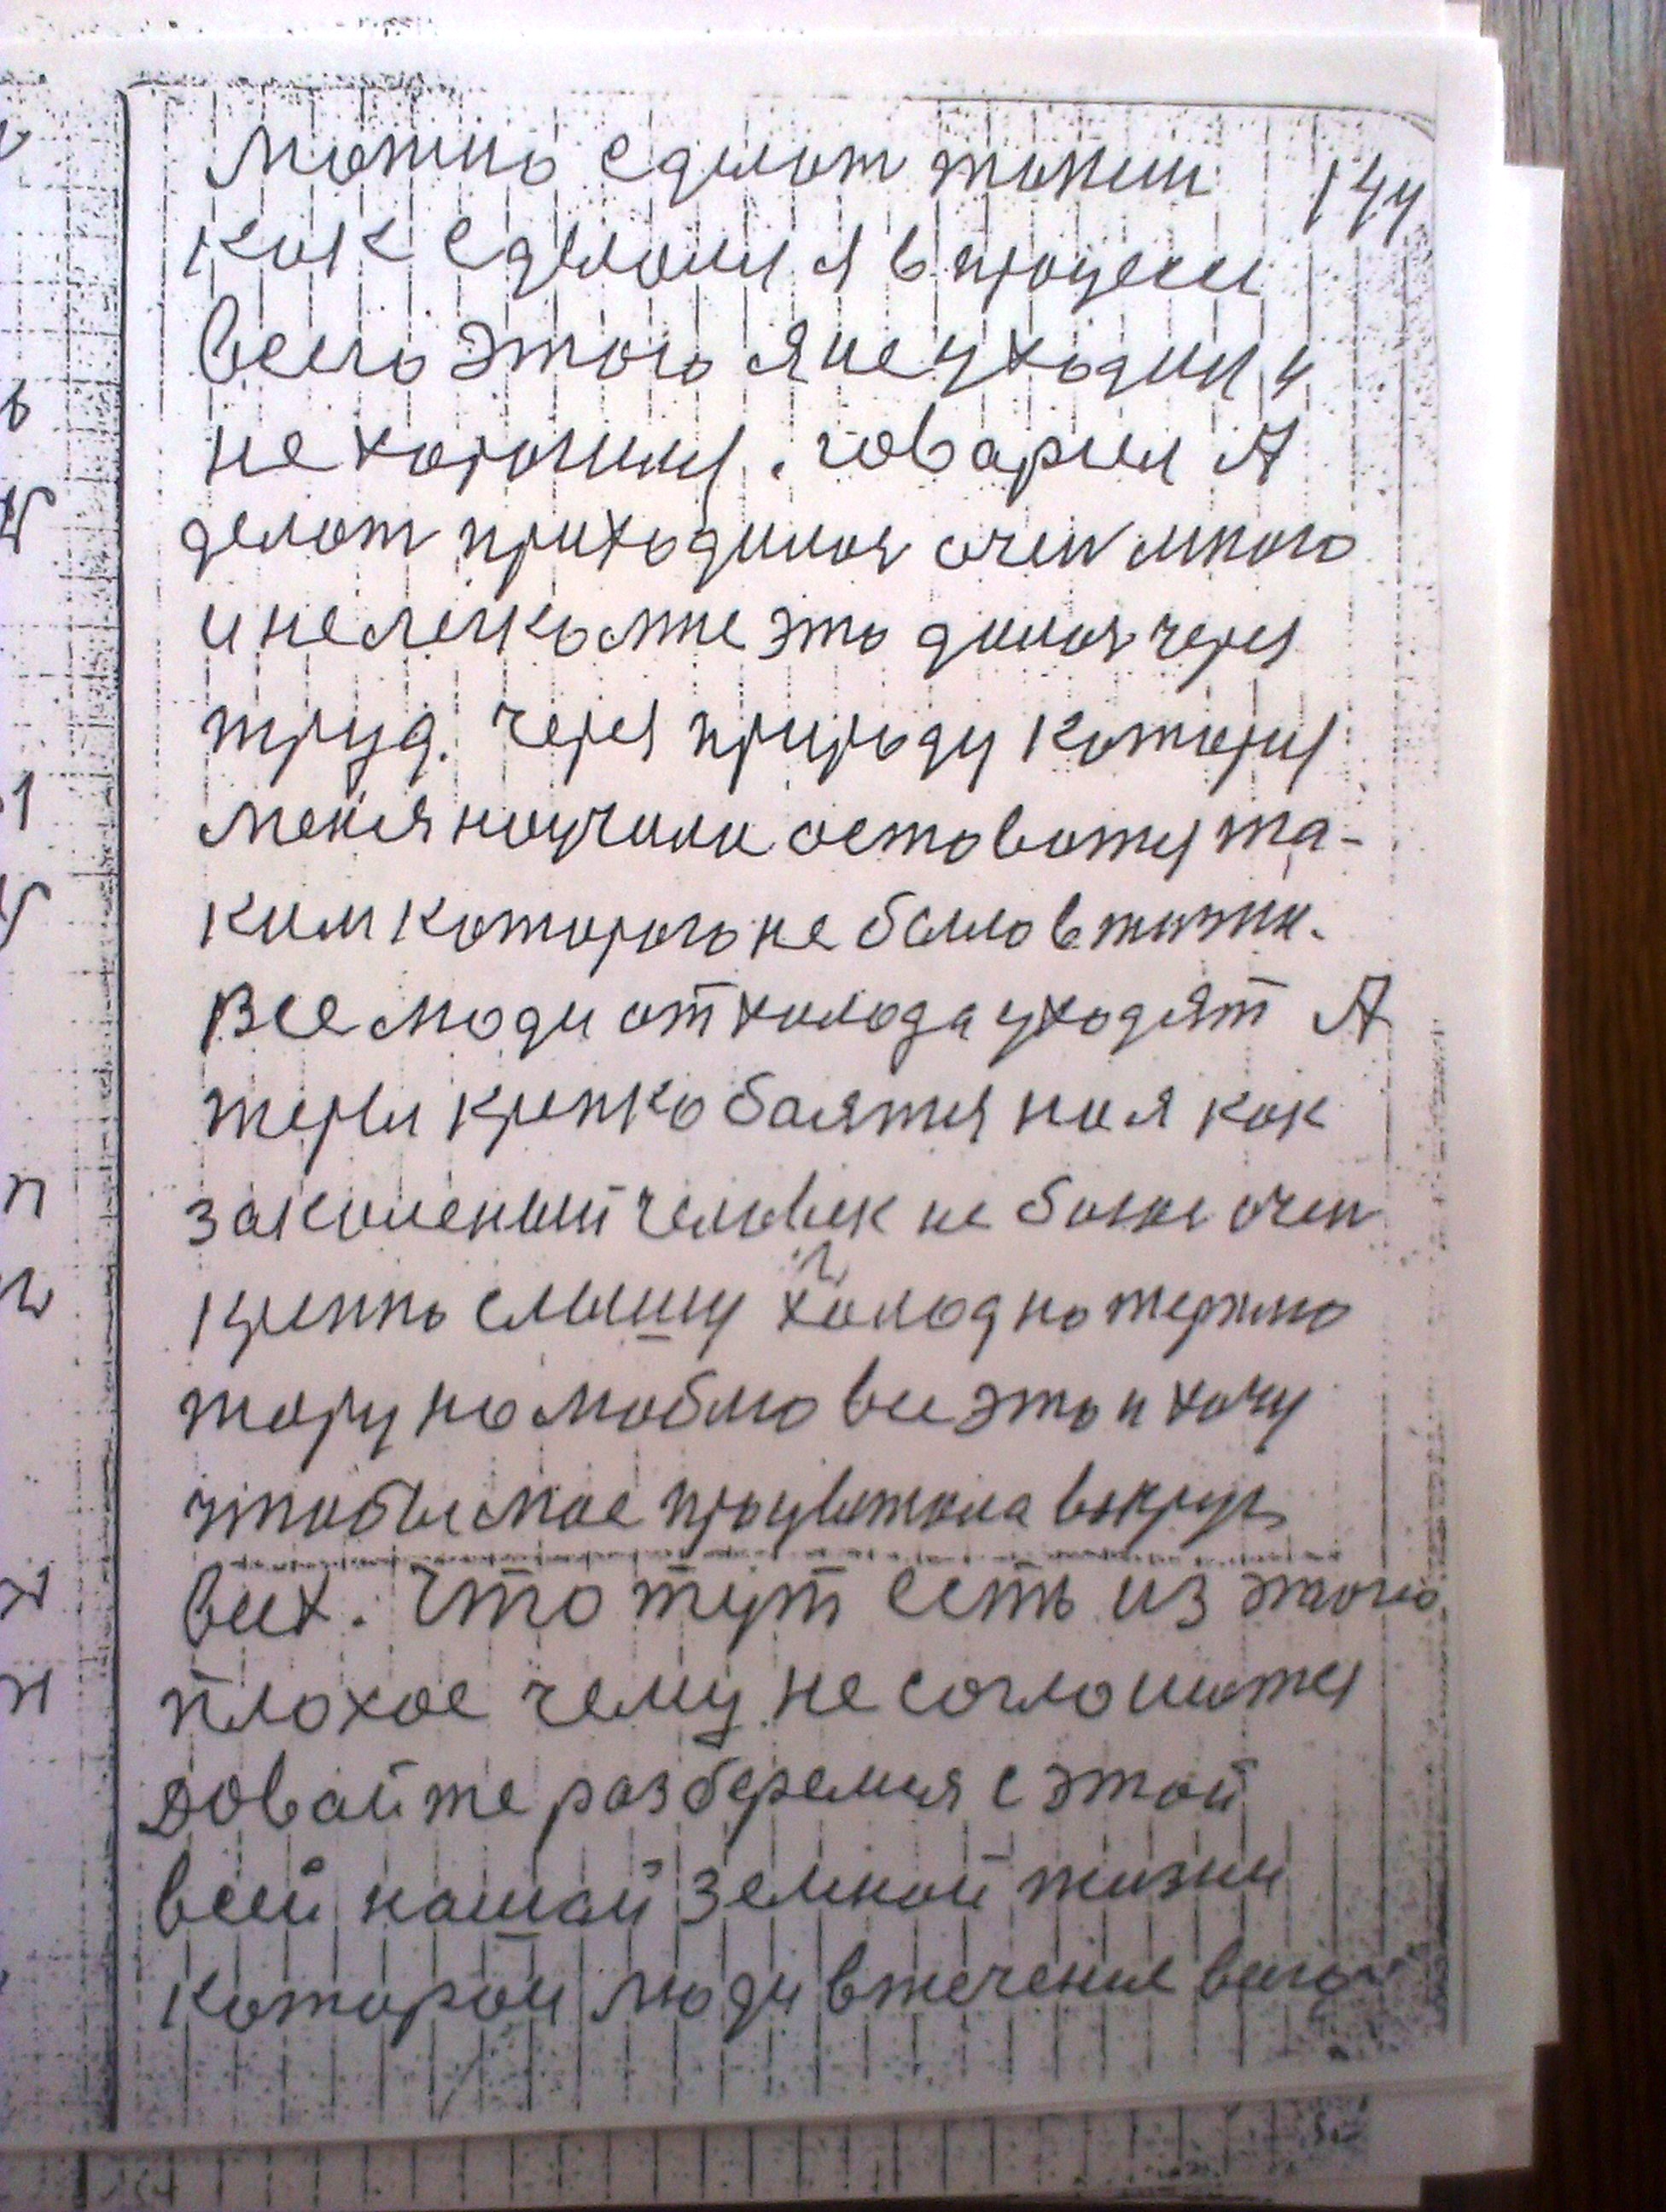 можно сделат таким 144
как сделался я в процесе
всего этого я не уходил и
не хоронился. говарил А
делат приходилося очен много
и не легко мне это дилося через
труд. через природу которая
меня научила оставатся та-
ким которого не было в жизни.
Все люди от холода уходят А
жары крепко баятся но я как
закаленый человек не боюсь очен
крепко слышу холод но тержлю
жару но люблю все это и хочу
чтобы мое процветала вокруг
всех. Что тут есть из этого
плохое чему не соглошатся
Довайте разберемся с этой
всей нашай земной жизни
которои люди в течение всего